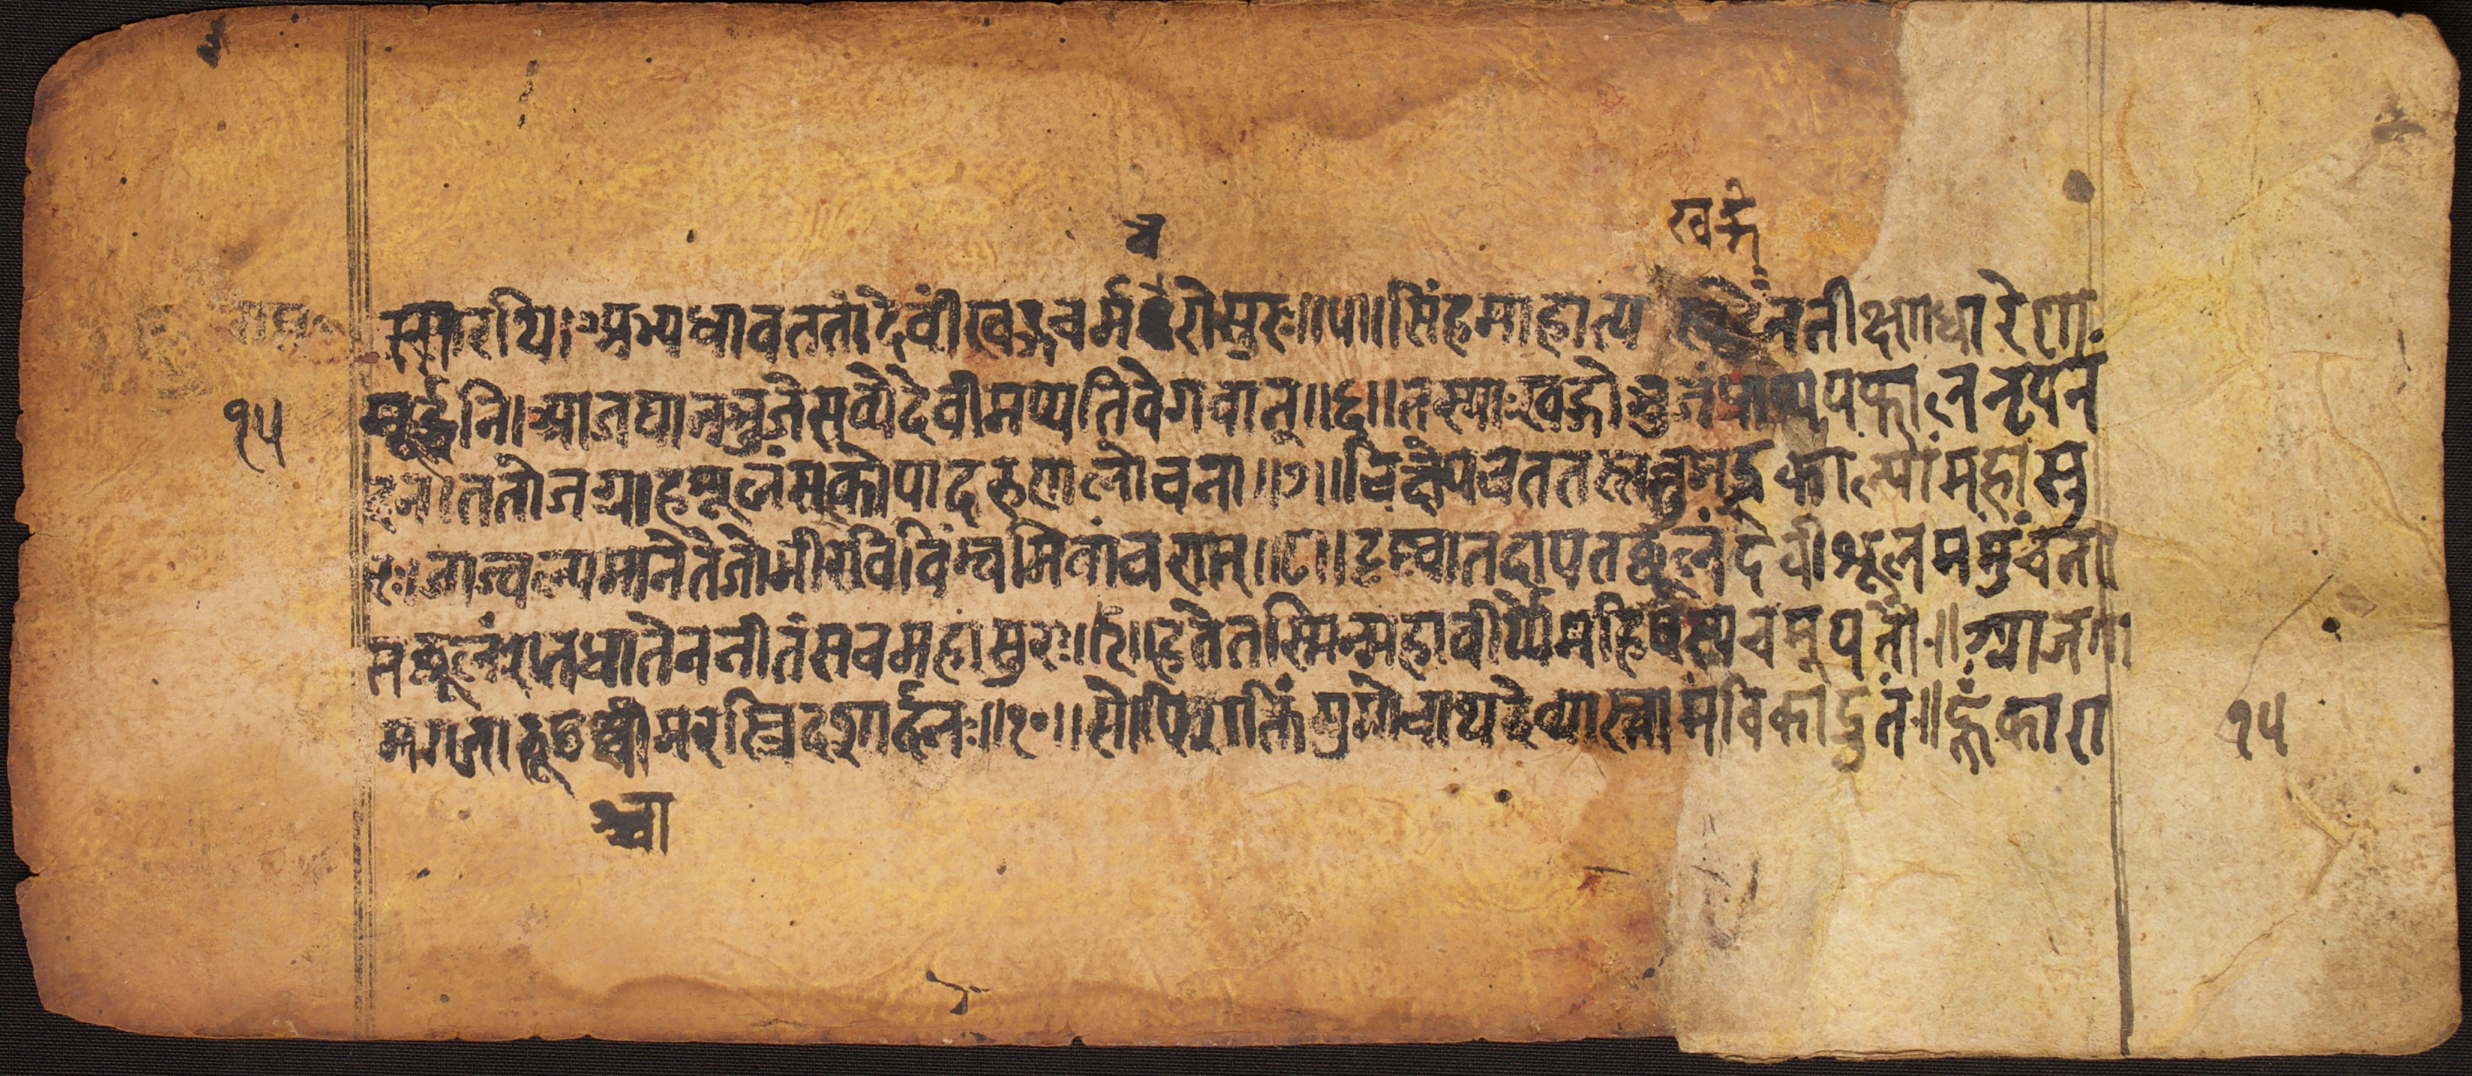 व
खड्गे
सारथिः। अभ्यधावततां देवीं खड्गचर्मधरोसुरः॥५॥सिंहमाहात्य खड्गेनतीक्ष्णधारेणा
मूर्द्धनि।आजघानभुजेसव्येदेवीमप्यतिवेगवान्॥६॥तस्याःखड्गोभुजंप्राप्यपफालनृपनं
१५
दन।ततोजग्राहशूलंसकोपादरुणलोचना॥७॥चिक्षेपचततस्तन्तुभद्रकाल्यांमहासु
रः।जाज्वल्यमानंतेजोभीरविविंम्वमिवांवरात्॥८॥दृष्ट्वातदापतछूलंदेवीशूलममुंचत।
तछूलंशतधातेननीतंसचमहासुरः॥९॥हतेतस्मिन्महावीर्य्येमहिषस्यचमूपतौ॥आजगा
मगजारूढश्चामरस्त्रिदशार्द्दनः॥१०॥सोपिशक्तिंमुमोचाथदेव्यास्तामंविकाद्रुतं॥हूँकारा
१५
श्चा